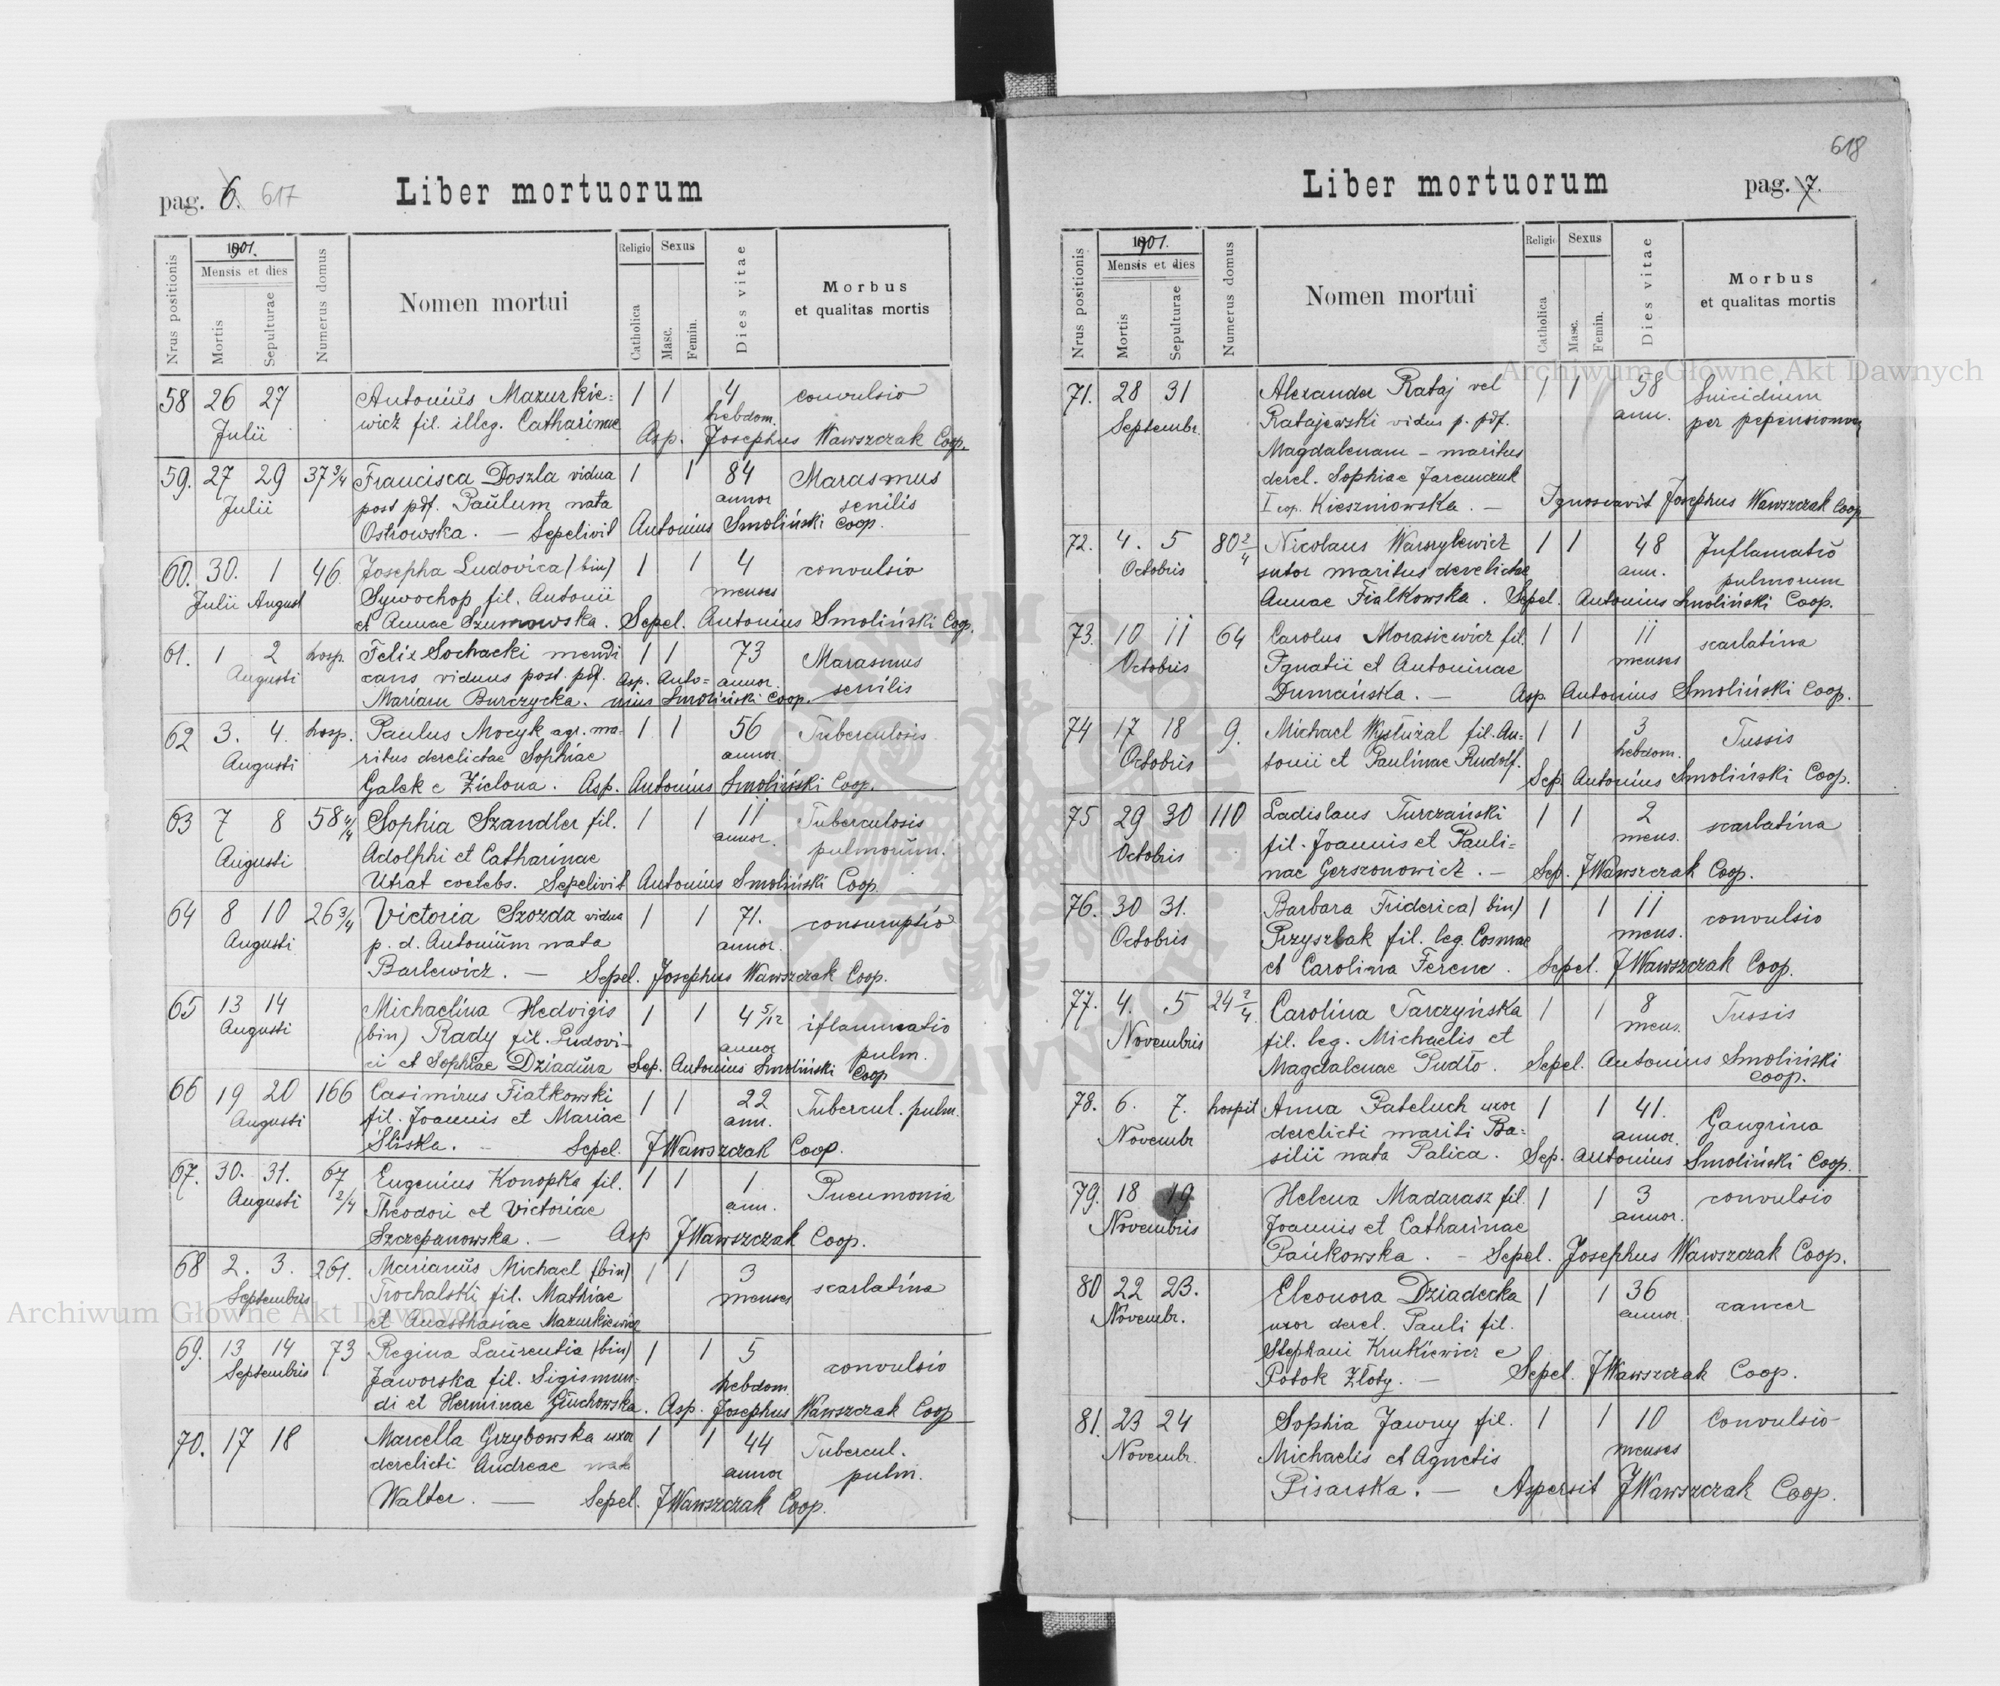 pag. 6. 617
Liber mortuorum
Nrus positionis
1901.
Mensis et dies
Mortis
Sepulturae
Numerus domus
Nomen mortui
Religio
Catholica
Sexus
Masc.
Femin.
Dies vitae
Morbus
et qualitas mortis
58 26 27 Antonius Mazurkie= 1 1 4 convulsio
Julii wicz fil. illeg. Catharinae hebdom.
Asp. Josephus Wawszczak Coop.
59. 27 29 37 3/4 Francisca Doszla vidua 1 1 84 Marasmus
Julii post pdf. Paulum nata annor senilis
Ostrowska. — Sepelivit Antonius Smoliński Coop.
60. 30. 1 46. Josepha Ludovica (bin) 1 1 4 convulsio
Julii August Sywochop fil. Antonii menses
et Annae Szumowska. Sepel. Antonius Smoliński Coop.
61. 1 2 hosp. Felix Sochacki mendi 1 1 73 Marasmus
Augusti cans viduus post. pdf. Asp. Anto= annor senilis
Mariam Burczycka. nius Smoliński Coop.
62 3. 4. hosp. Paulus Mocyk agr. ma- 1 1 56 Tuberculosis
Augusti ritus derelictae Sophiae annor.
Galek e Zielona. Asp. Antonius Smoliński Coop.
63 7 8 58 4/4 Sophia Szandler fil. 1 1 11 Tuberculosis
Augusti Adolphi et Catharinae annor. pulmorum.
Utrat coelebs. Sepelivit Antonius Smoliński Coop.
64 8 10 26 3/4 Victoria Szozda vidua 1 1 71. consumptio
Augusti p. d. Antonium nata annor.
Barlewicz. — Sepel. Josephus Wawszczak Coop.
65 13 14 Michaelina Hedvigis 1 1 4 5/12 iflammatio
Augusti (bin) Rady fil. Ludovi- annor pulm.
ci et Sophiae Dziadura Sep. Antonius Smoliński Coop
66 19 20 166 Casimirus Fiatkowski 1 1 22 Tubercul. pulm.
Augusti fil. Joannis et Mariae ann.
Śliska. — Sepel. JWawszczak Coop.
67. 30. 31. 67 2/4 Eugenius Konopka fil. 1 1 1 Pneumonia
Augusti Theodori et Victoriae ann.
Szczepanowska. — Asp JWawszczak Coop.
68 2. 3. 261. Marianus Michael (bin) 1 1 3 scarlatina
Septembris Trochalski fil. Mathiae menses
et Anasthasiae Mazurkiewicz
69. 13 14 73 Regina Laurentia (bin) 1 1 5 convulsio
Septembris Jaworska fil. Sigismun- hebdom.
di et Herminae Głuchowska. Asp. Josephus Wawszczak Coop
70. 17 18 Marcella Grzybowska uxor 1 1 44 Tubercul.
derelicti Andreae nata annor pulm.
Walter. — Sepel. JWawszczak Coop.
618
Liber mortuorum
pag. 7.
Nrus positionis
1901.
Mensis et dies
Mortis
Sepulturae
Numerus domus
Nomen mortui
Religio
Catholica
Sexus
Masc.
Femin.
Dies vitae
Morbus
et qualitas mortis
71. 28 31 Alexander Rataj vel 1 1 58 Suicidium
Septembr. Ratajewski vidus p. pdf. ann. per
Magdalenam - maritus
derel. Sophiae Jaremczuk
I cop. Kieszniowska. — Josephus Wawszczak Coop
72. 4. 5 80 2/4 Nicolaus Warszylewicz 1 1 48 Inflamatio
Octobris sutor maritus derelictae ann. pulmorum
Annae Fialkowska. Sepel. Antonius Smoliński Coop.
73. 10 11 64 Carolus Morasiewicz fil. 1 1 11 scarlatina
Octobris Ignatii et Antoninae menses
Dumańska. — Asp. Antonius Smoliński Coop.
74 17 18 9. Michael Wystural fil. An= 1 1 3 Tussis
Octobris tonii et Paulinae Rudolf. hebdom.
Sep. Antonius Smoliński Coop.
75 29 30 110 Ladislaus Turczański 1 1 2 scarlatina
Octobris fil. Joannis et Pauli= mens.
nae Gerszonowicz. — Sep. JWawszczak Coop.
76. 30 31. Barbara Friderica (bin) 1 1 11 convulsio
Octobris Przyszlak fil. leg. Cosmae mens.
et Carolina Ferenc. Sepel. JWawszczak Coop.
77. 4. 5 24 2/4 Carolina Tarczyńska 1 1 8 Tussis
Novembris fil. leg. Michaelis et mens.
Magdalenae Pudło. Sepel. Antonius Smoliński
Coop.
78. 6. 7. hospit Anna Pateluch uxor 1 1 41. Gangrina
Novembr derelicti mariti Ba= annor.
silii nata Palica. Sep. Antonius Smoliński Coop.
79. 18 19 Helena Madarasz fil. 1 1 3 convulsio
Novembris Joannis et Catharinae annor.
Pańkowska. - Sepel. Josephus Wawszczak Coop.
80 22 23. Eleonora Dziadecka 1 1 36 cancer
Novembr. uxor derel. Pauli fil. annor.
Stephani Krukiewicz e
Potok Złoty. — Sepel. JWawszczak Coop.
81. 23 24 Sophia Jawny fil. 1 1 10 Convulsio
Novembr. Michaelis et Agnetis menses
Pisarska. — Aspersit JWawszczak Coop.
Archiwum Główne Akt Dawnych
Archiwum Główne Akt Dawnych